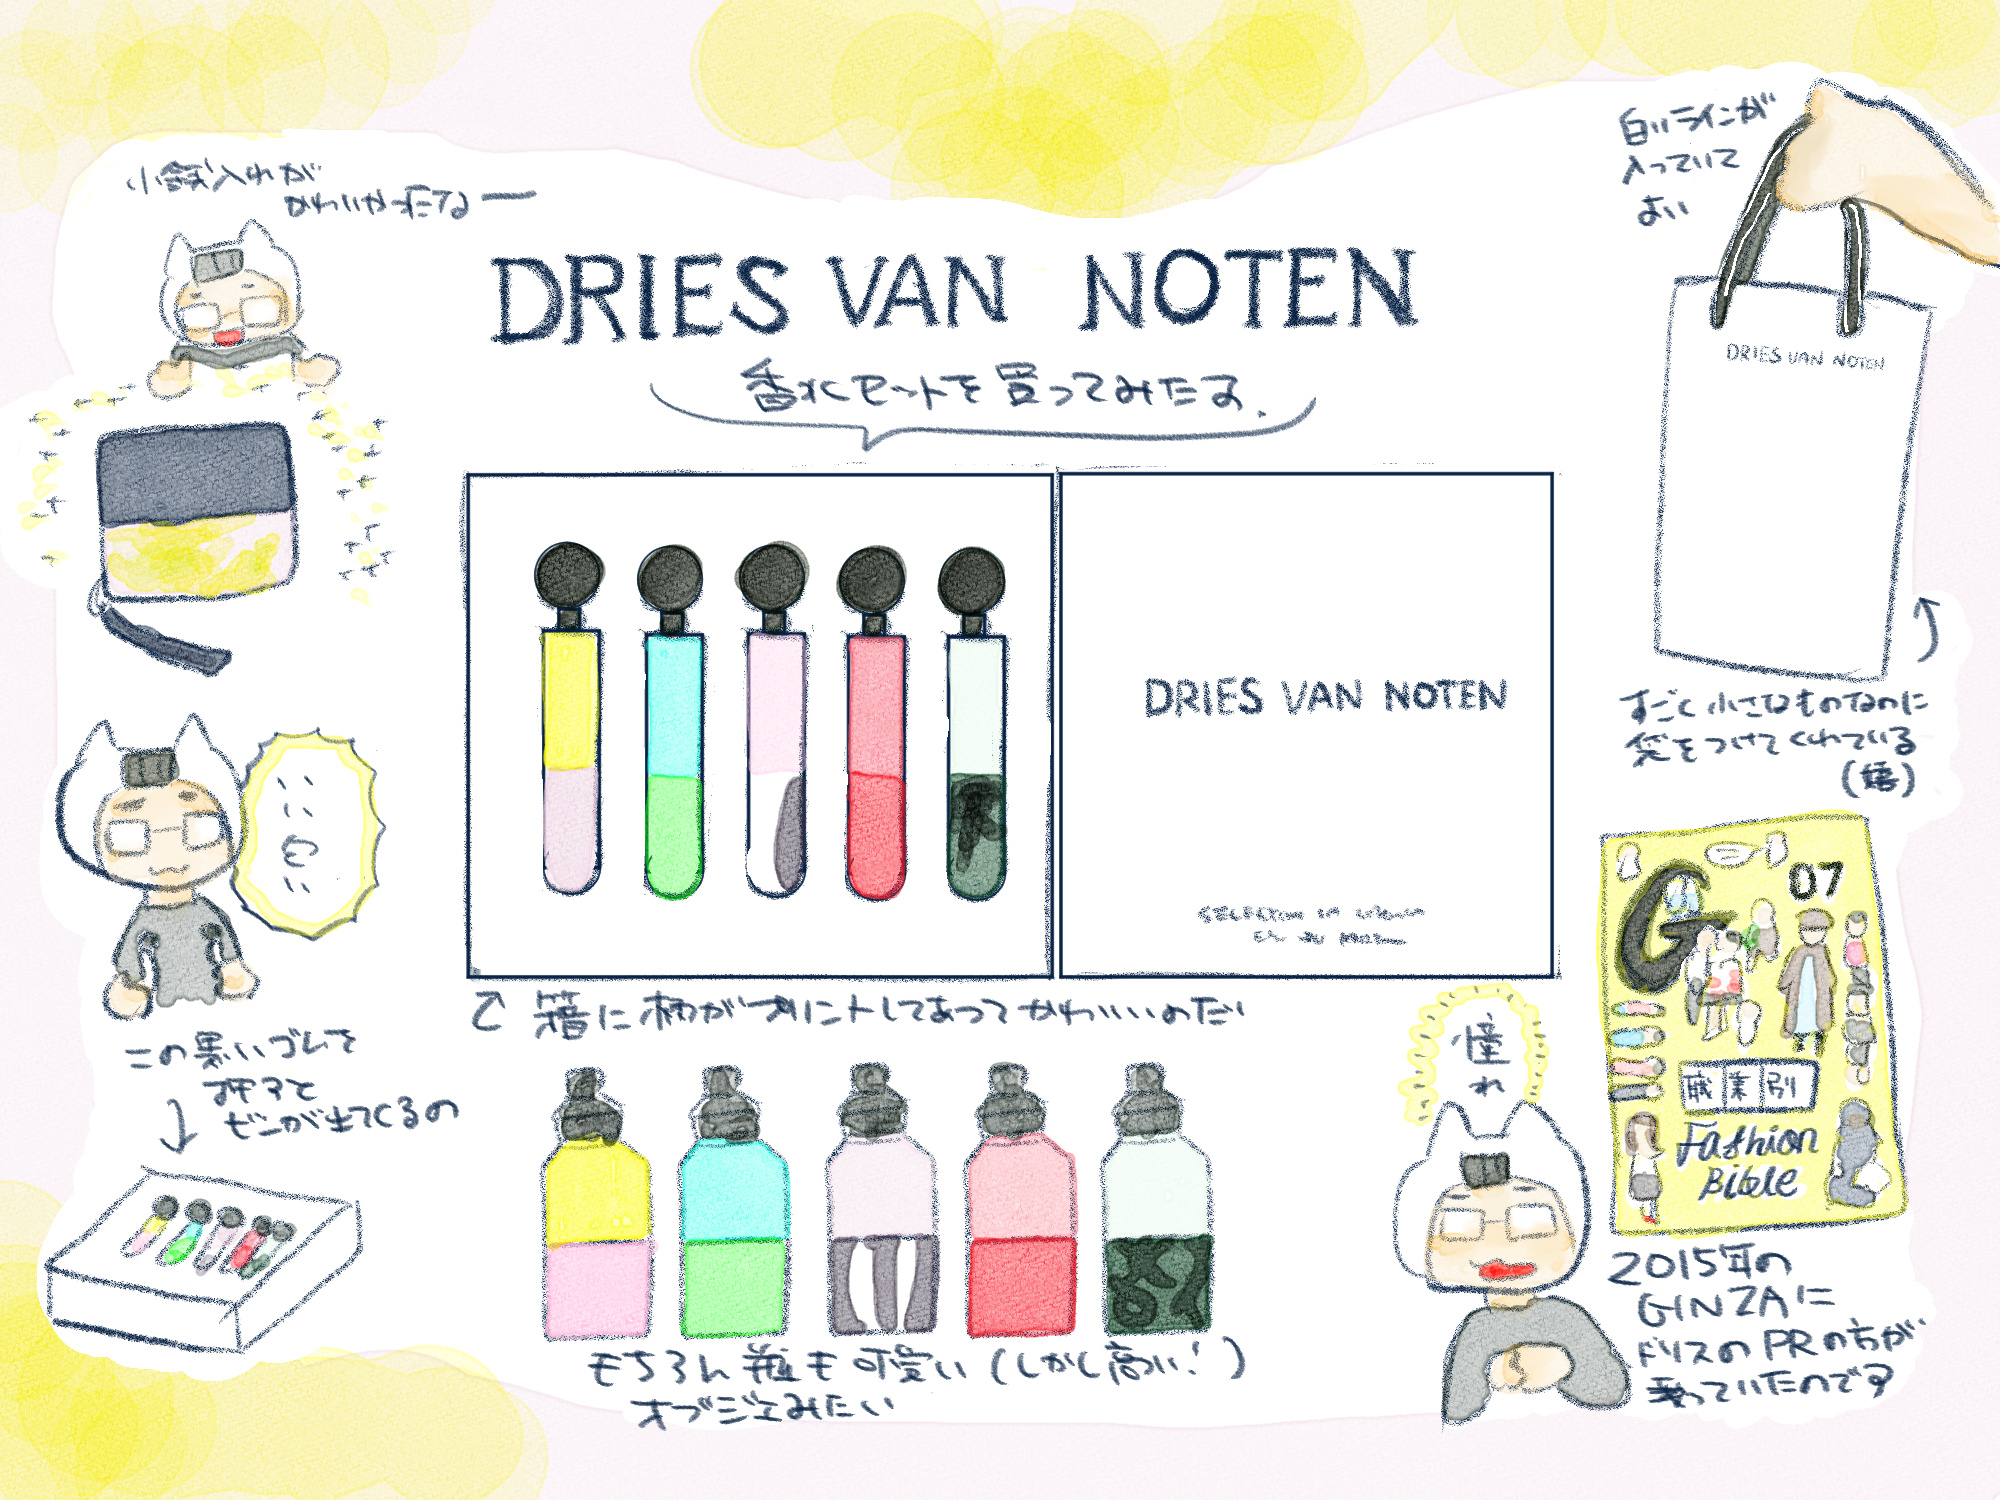 小銭入れが
かわいかったなー
DRIES VAN NOTEN
香水セットを買ってみたよ.
白いラインが
入っていて
よい
DRIES VAN NOTEN
DRIES VAN NOTEN
すごく小さなものなのに
袋をつけてくれている
(嬉)
いい匂い
この黒いゴムを
押すと
ビンが出てくるの
箱に柄がプリントしてあってかわいいのだ
もちろん瓶も可愛い(しかし高い!)
オブジェみたい
憧れ
G
07
職業別
Fashion
Bible
2015年の
GINZAに
ドリスのPRの方が
乗っていたのです